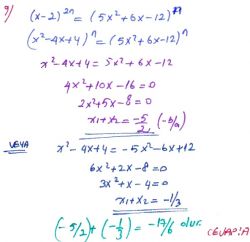 9) (x-2)²ⁿ = (5x²+6x-12)ⁿ
(x²-4x+4)ⁿ = (5x²+6x-12)ⁿ
x²-4x+4 = 5x²+6x-12
4x²+10x-16=0
2x²+5x-8=0
x₁+x₂ = -5/2 (-b/a)
VEYA x²-4x+4 = -5x²-6x+12
6x²+2x-8=0
3x²+x-4=0
x₁+x₂ = -1/3
(-5/2)+(-1/3) = -17/6 olur.